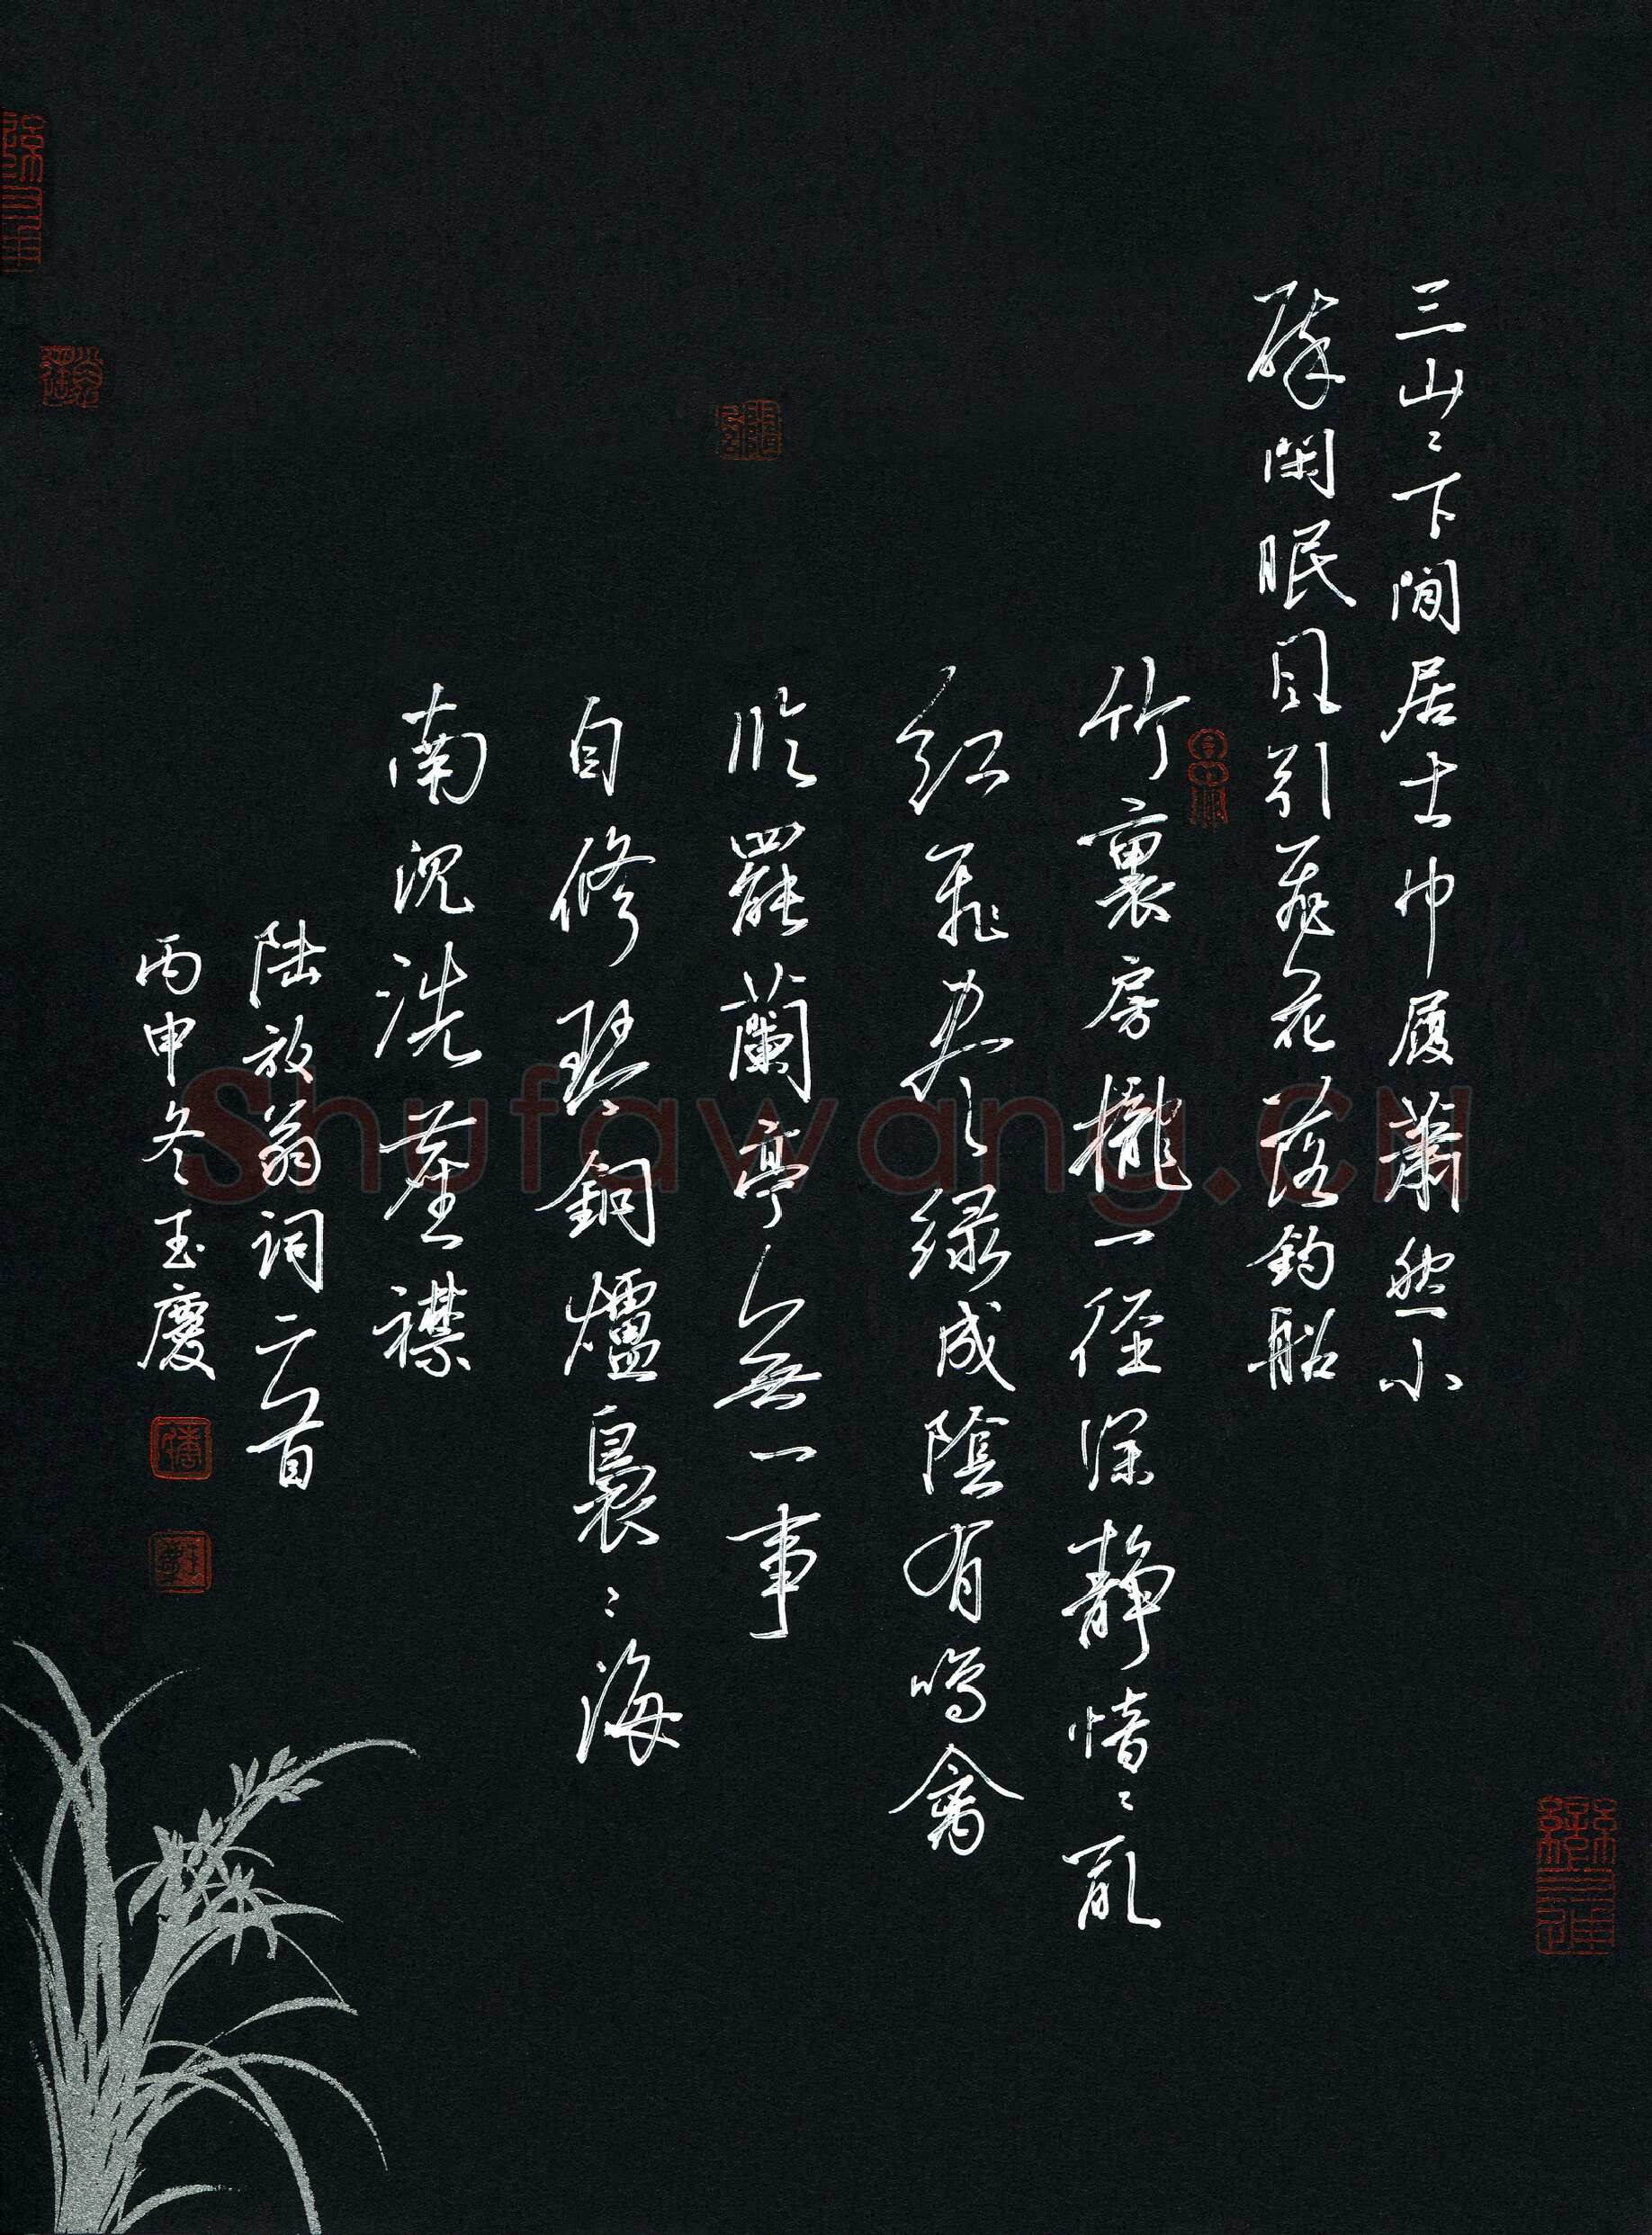 三山々下閒居士巾履蕭然小
醉閑眠風引飛花落釣船
竹裏房櫳一徑深靜愔々亂
紅飛盡綠成陰有鳴禽
臨罷蘭亭無一事
自修琴銅爐裊々海
南沉洗塵襟
陸放翁詞二首
丙申冬玉慶
Shufawang.cn